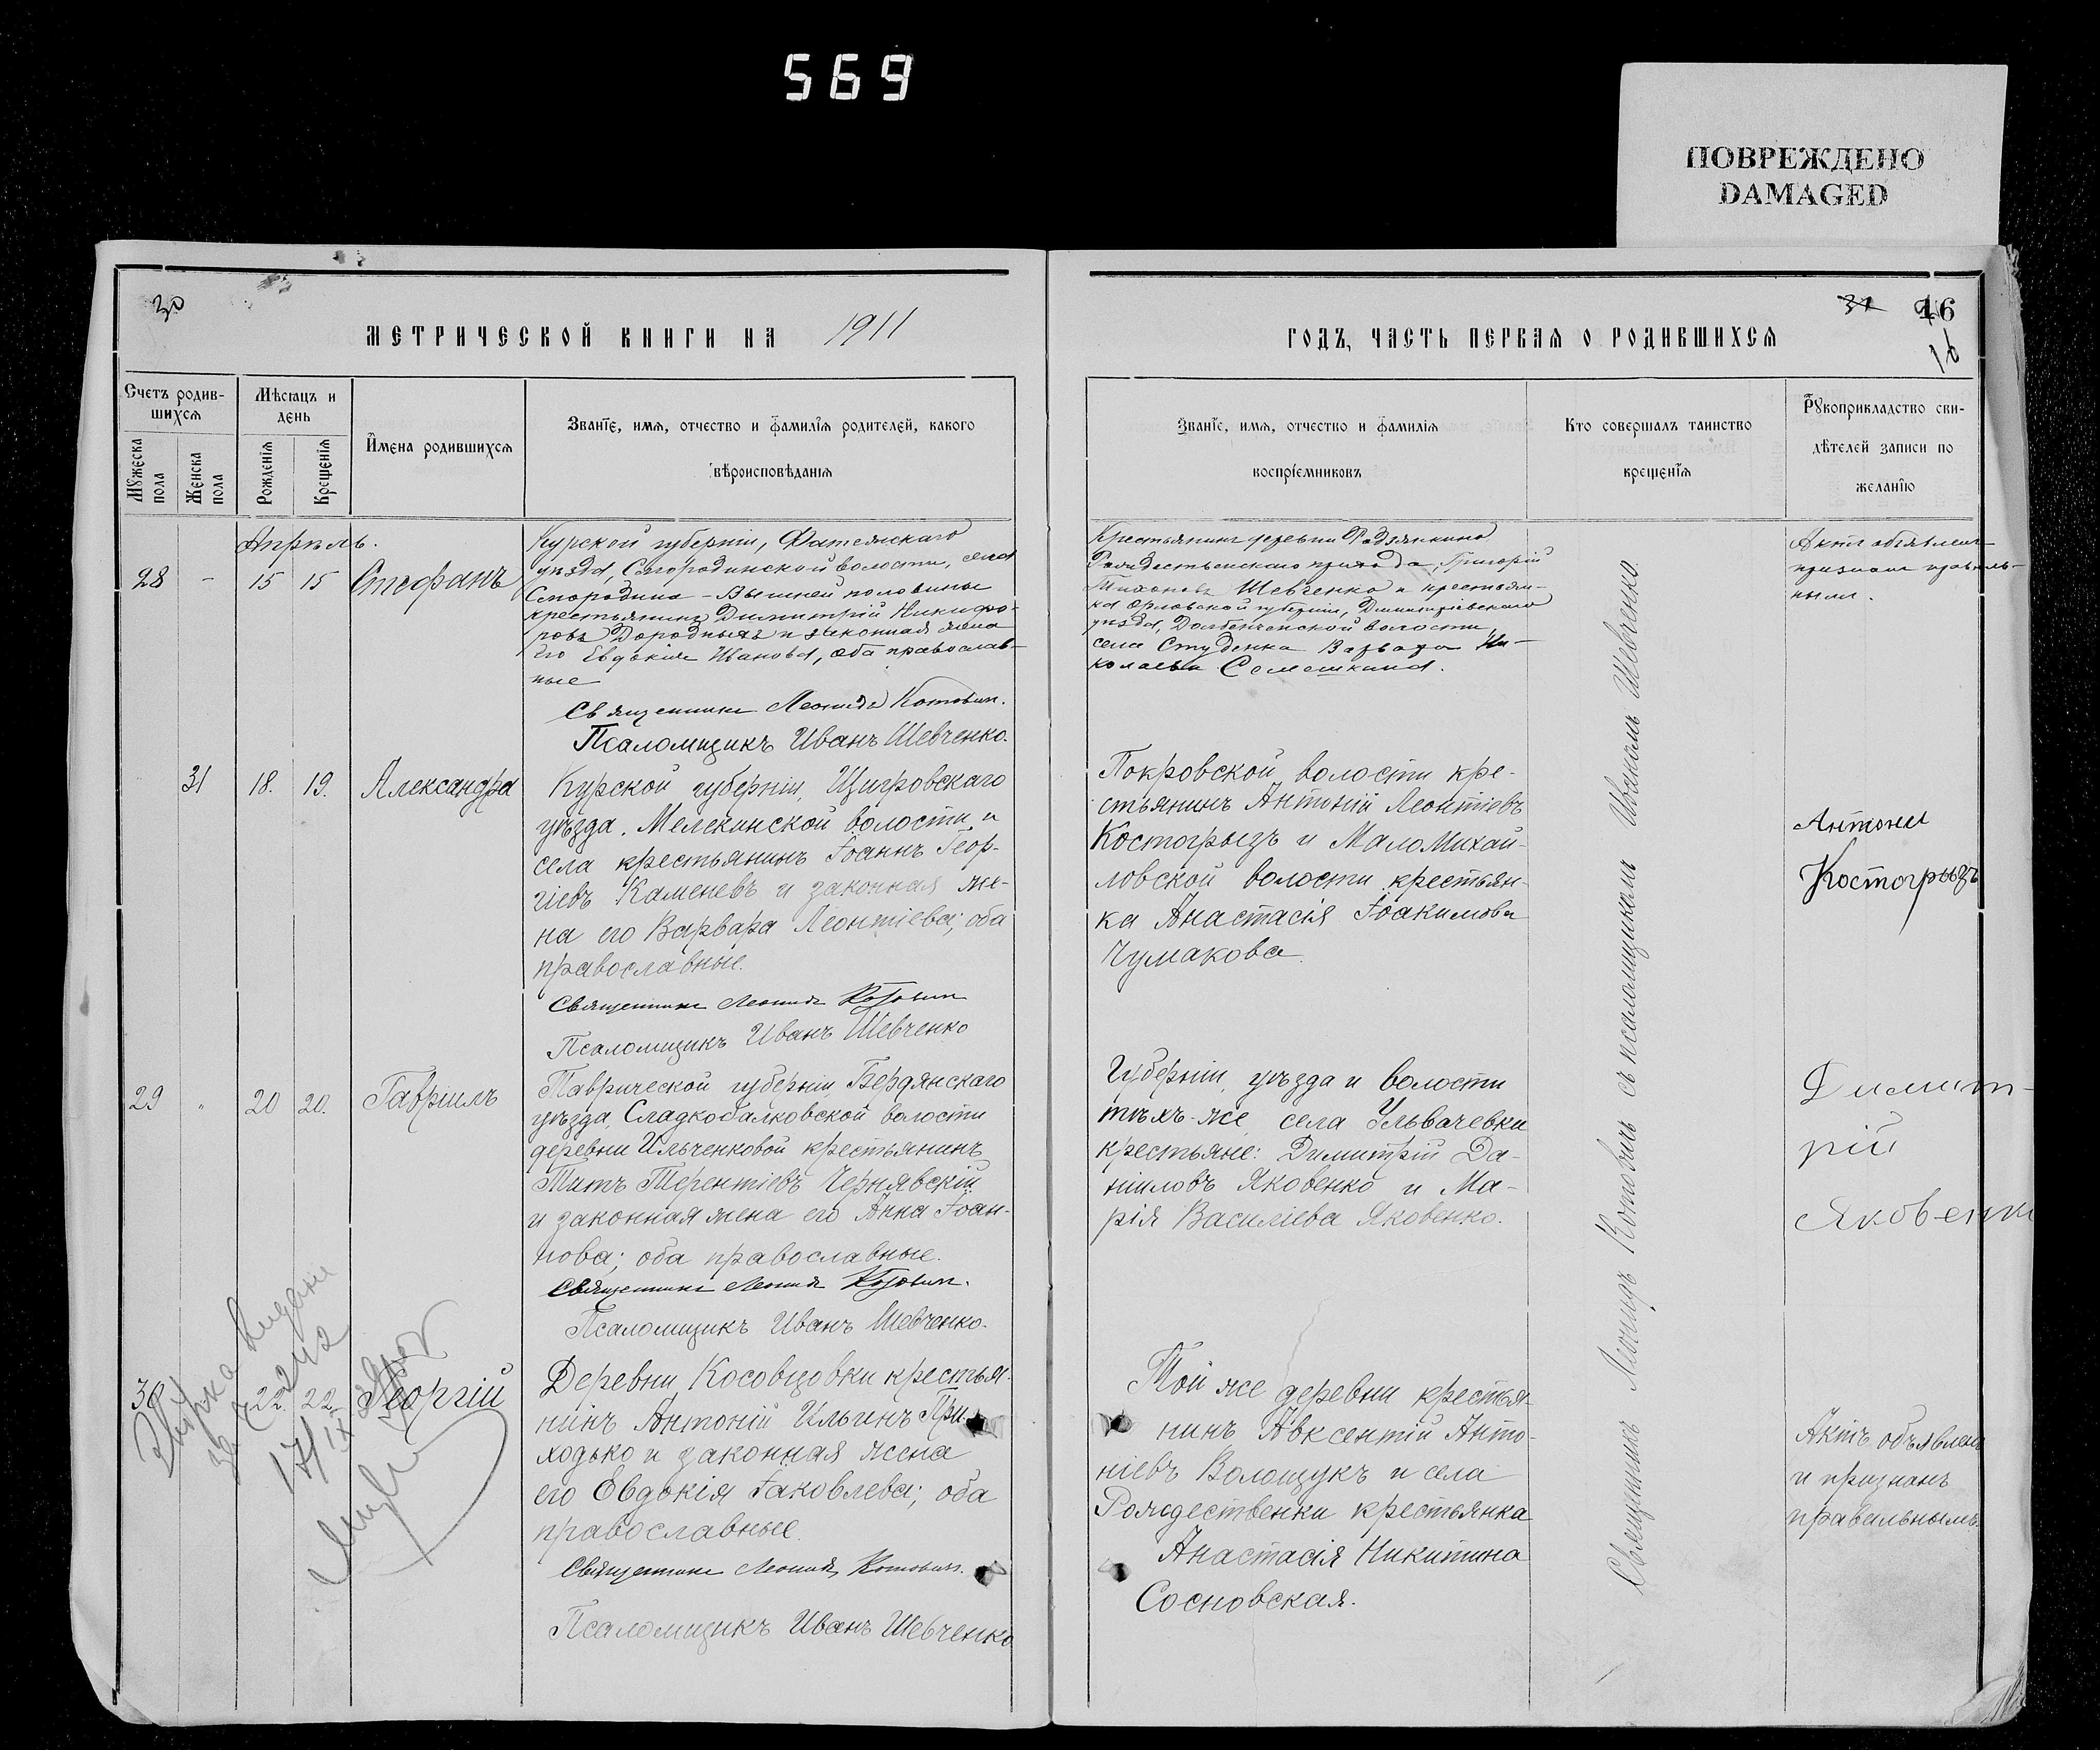 569
ПОВРЕЖДЕНО
DAMAGED
30
МЕТРИЧЕСКОЙ КНИГИ НА 1911
Счетъ родив-
шихся
Мѣсяцъ и
день
Имена родившихся
Званіе, имя, отчество и фамилія родителей, какого
вѣроисповѣданія
Мужеска
пола
Женска
пола
Рожденія
Крещенія
Апрѣль.
28 - 15 15 Стефанъ
Курской губерніи, Фатежскаго
уѣзда, Смородинской волости, села
Смородина - Вышней половины
крестьянинъ Димитрій Никифо-
ровъ Дородныхъ и законная жена
его Евдокія Иванова, оба православ-
ные
Священникъ Леонидъ Котовичъ.
Псаломщикъ Иванъ Шевченко.
31 18. 19. Александра
Курской губерніи, Щигровскаго
уѣзда, Мелехинской волости и
села крестьянинъ Іоаннъ Геор-
гіевъ Каменевъ и законная же-
на его Варвара Леонтіева; оба
православные.
Священникъ Леонидъ Котовичъ
Псаломщикъ Иванъ Шевченко
29 " 20 20. Гавріилъ
Таврической губерніи, Бердянскаго
уѣзда, Сладкобалковской волости
деревни Ильченковой крестьянинъ
Титъ Терентіевъ Чернявскій
и законная жена его Анна Іоан-
нова; оба православные.
Священникъ Леонидъ Котовичъ.
Псаломщикъ Иванъ Шевченко.
30 22. 22. Георгій
Деревни Косовцовки крестья-
нинъ Антоній Ильинъ При-
ходько и законная жена
его Евдокія Іаковлева; оба
православные.
Священникъ Леонидъ Котовичъ.
Псаломщикъ Иванъ Шевченко
31 46
16
ГОДЪ, ЧАСТЬ ПЕРВАЯ О РОДИВШИХСЯ
Званіе, имя, отчество и фамилія
воспріемниковъ
Кто совершалъ таинство
крещенія
Рукоприкладство сви-
дѣтелей записи по
желанію
Крестьянинъ деревни
Рождественскаго прихода, Григорій
Тихоновъ Шевченко и крестьян-
ка Орловской губерніи, Димитріевскаго
уѣзда, Долбенкинской волости,
села Студенка Варвара Ни-
колаева Семешкина.
Актъ объявленъ
признанъ правиль-
нымъ.
Покровской волости кре-
стьянинъ Антоній Леонтіевъ
Костогрызъ и МалоМихай-
ловской волости крестьян-
ка Анастасія Іоакимова
Чумакова.
Антони
Костогрызъ
Губерніи, уѣзда и волости
тѣхъ-же села Ульвачевки
крестьяне: Димитрій Да-
ніиловъ Яковенко и Ма-
рія Василіева Яковенко.
Димит-
рій
Яковенко
Той же деревни крестья-
нинъ Авксентій Анто-
ніевъ Волощукъ и села
Рождественки крестьянка
Анастасія Никитина
Сосновская.
Актъ объявленъ
и признанъ
правильнымъ.
Священникъ Леонидъ Котовичъ съ псаломщикомъ Иваномъ Шевченко.